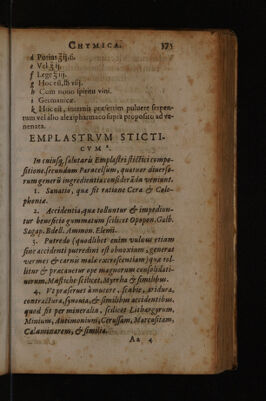 CHYMICA. 375
d Potius ℥ij.ß.
e Vel ℥ij.
f Lege ℥iij.
g Hoc est, ℔ viij.
h Cum nouo spiritu vini.
i Germanicæ.
k Hoc est, intermis præsertim puluere serpen-
tum vel alio alexipharmaco supra proposito ad ve-
nenata.
EMPLASTRVM STICTI-
CVM
In cuiusq; salutaris Emplastri stictici compo-
sitione, secundum Paracelsum, quatuor diuersa-
rum generũ ingredientia consideranda veniunt.
1. Sanatio, quæ fit ratione Ceræ & Colo-
phoniæ.
2. Accidentia, quæ tolluntur & impediun-
tur beneficio gummatum scilicet Opopon. Galb.
Sagap. Bdell. Ammon. Elemi.
3. Putredo (quodlibet enim vulnus etiam
sine accidenti putredini est obnoxium, generat
vermes & carnis malæ excrescentiam) quæ tol-
litur & præcauetur ope magnorum consolidati-
uorum, Mastiche scilicet, Myrrha & similibus.
4. Vt præseruet à mucore, scabie, ariditura,
contractura, synouia, & similibus accidentibus,
quod fit per mineralia, scilicet Lithargyrum,
Minium, Antimonium, Cerussam, Marcasitam,
Calaminarem, & similia.
Aa 4